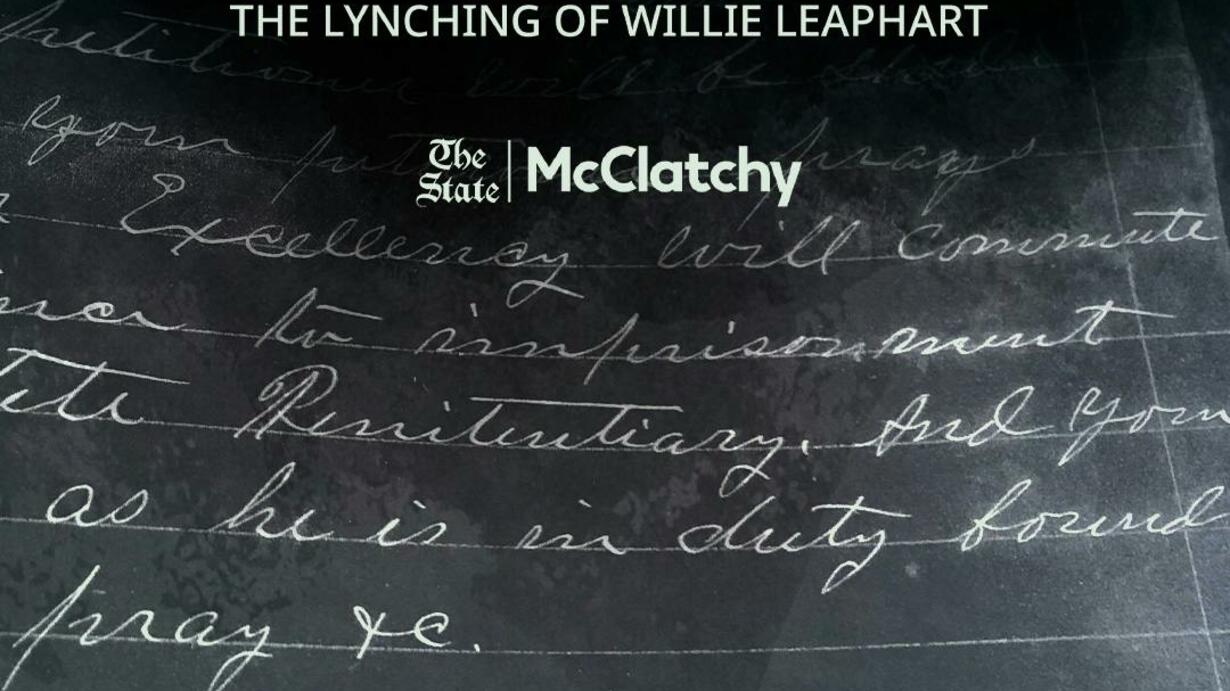 THE LYNCHING OF WILLIE LEAPHART
petitioner will be
your petitioner prays
Excellency will commute
to imprisonment
Penitentiary. And your
as he is in duty bound
pray &c.
The State | McClatchy